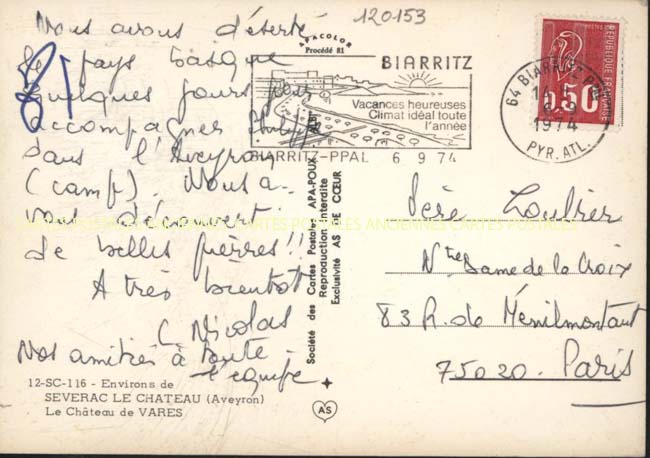 Nous avons déserté
le pays basque
quelques jours pour
accompagner Philippe
dans l'Aveyron
(camp). Nous a-
vons découvert
de belles pierres!!
A très bientot
Nicolas
Nos amitiés à toute
l'équipe
12-SC-116 - Environs de
SEVERAC LE CHATEAU (Aveyron)
Le Château de VARES
120153
APACOLOR
Procédé 81
BIARRITZ
Vacances heureuses
Climat idéal toute
l'année
BIARRITZ-PPAL 6 9 74
64 BIARRITZ PPAL
1974
PYR. ATL.
REPUBLIQUE FRANÇAISE
0,50
Société des Cartes Postales APA-POUX
Reproduction interdite
Exclusivité AS DE CŒUR
AS
Père
Ntre Dame de la Croix
83 R. de Ménilmontant
75020. Paris
CARTES POSTALES ANCIENNES CARTES POSTALES